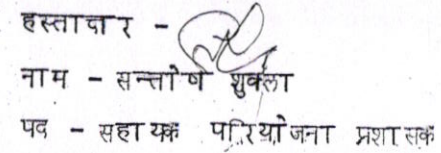 हस्ताक्षर -
नाम - सन्तोष शुक्ला
पद - सहायक परियोजना प्रशासक